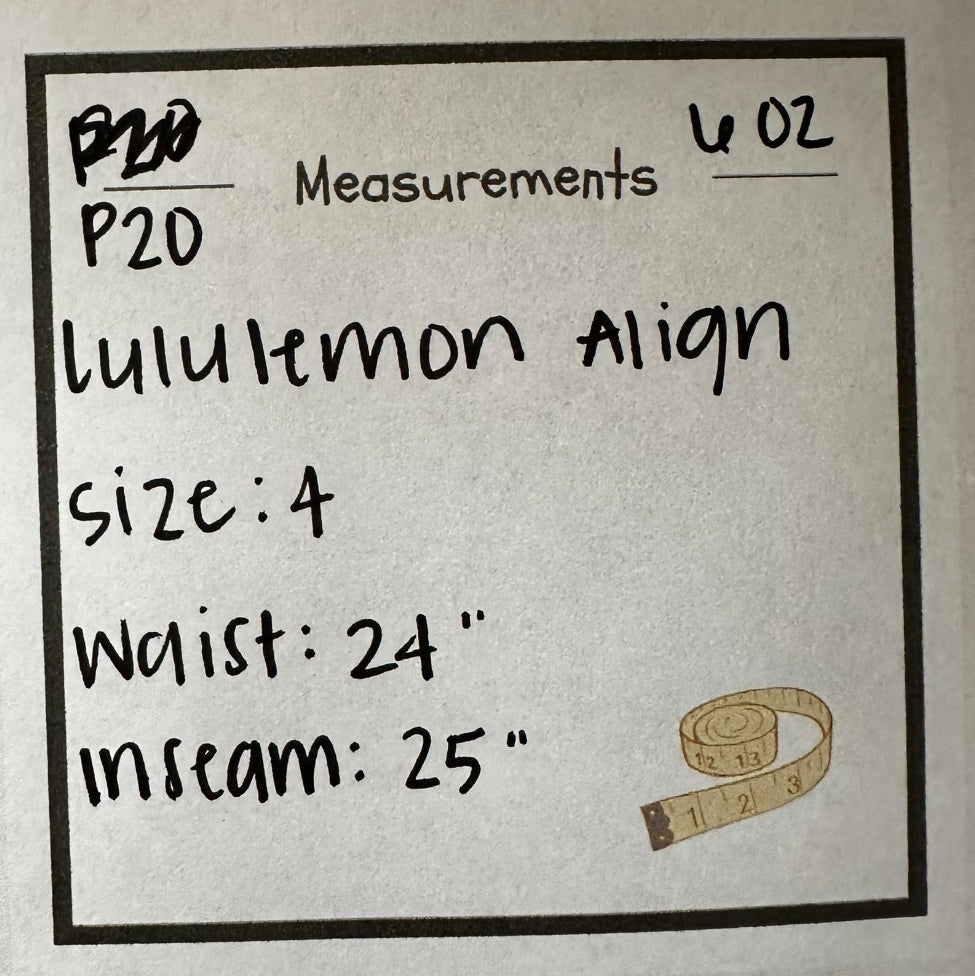 6 OZ
Measurements
P20
lululemon Align
size: 4
Waist: 24"
inseam: 25"
12 13
1 2 3